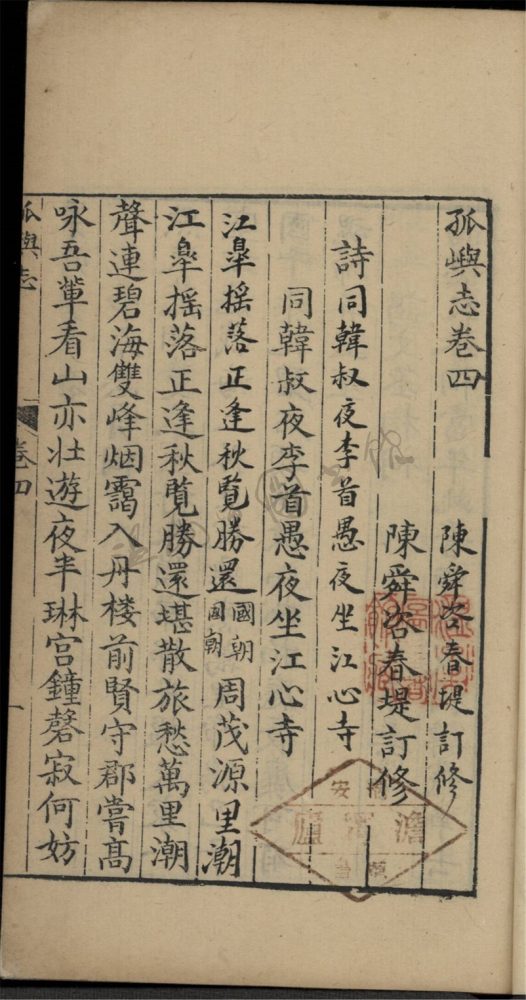 孤嶼志卷四　陳舜咨春堤訂修
陳舜咨春堤訂修
詩同韓叔夜李首愚夜坐江心寺
同韓叔夜李首愚夜坐江心寺
江臯揺落正逢秋覧勝還國朝國朝周茂源里潮
江臯揺落正逢秋覧勝還堪散旅愁萬里潮
聲連碧海雙峰烟靄入丹楼前賢守郡嘗高
咏吾軰看山亦壮遊夜半琳宫鐘磬寂何妨
孤嶼志　卷四　一